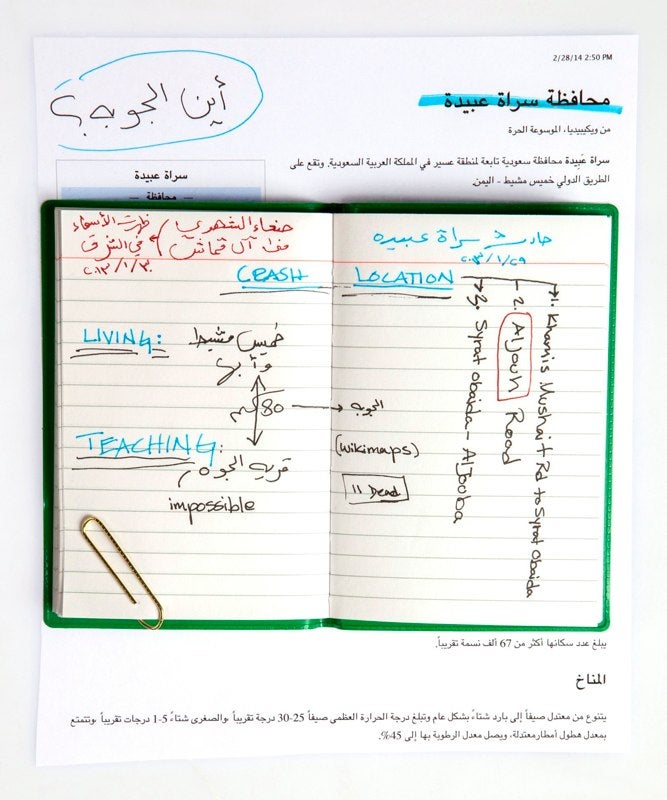 2/28/14 2:50 PM
أين الجوبه؟
محافظة سراة عبيدة
من ويكيبيديا، الموسوعة الحرة
سراة عبيدة محافظة سعودية تابعة لمنطقة عسير في المملكة العربية السعودية. وتقع على
الطريق الدولي خميس مشيط - اليمن.
سراة عبيدة
— محافظة —
حادث سراة عبيده
٢٠٠٣/١/٢٩
صنعاء الشهري
آل قماش
ظهرت الأسماء
في الشرق
٢٠١٣/١/٣٠
CRASH LOCATION
1. Khamis Mushait Rd to Syrat Obaida
2. AlJouh Road
3. Syrat Obaida - AlJooba
LIVING:
خميس مشيط
وأبها
80 كم
الجوبه
(wikimaps)
11 Dead
TEACHING:
قريه الجوه
impossible
يبلغ عدد سكانها أكثر من 67 ألف نسمة تقريباً.
المناخ
يتنوع من معتدل صيفاً إلى بارد شتاءً بشكل عام وتبلغ درجة الحرارة العظمى صيفاً 25-30 درجة تقريباً ،والصغرى شتاءً 1-5 درجات تقريباً ،وتتمتع
بمعدل هطول أمطارمعتدلة، ويصل معدل الرطوبة بها إلى 45%.